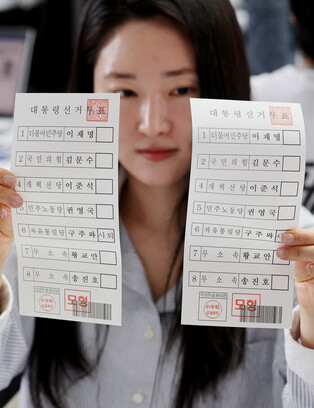 대통령선거투표
1 더불어민주당 이재명
2 국민의힘 김문수
4 개혁신당 이준석
5 민주노동당 권영국
6 자유통일당 구주와 사퇴
7 무소속 황교안
8 무소속 송진호
모형
대통령선거투표
1 더불어민주당 이재명
2 국민의힘 김문수
4 개혁신당 이준석
5 민주노동당 권영국
6 자유통일당 구주와
7 무소속 황교안
8 무소속 송진호
모형